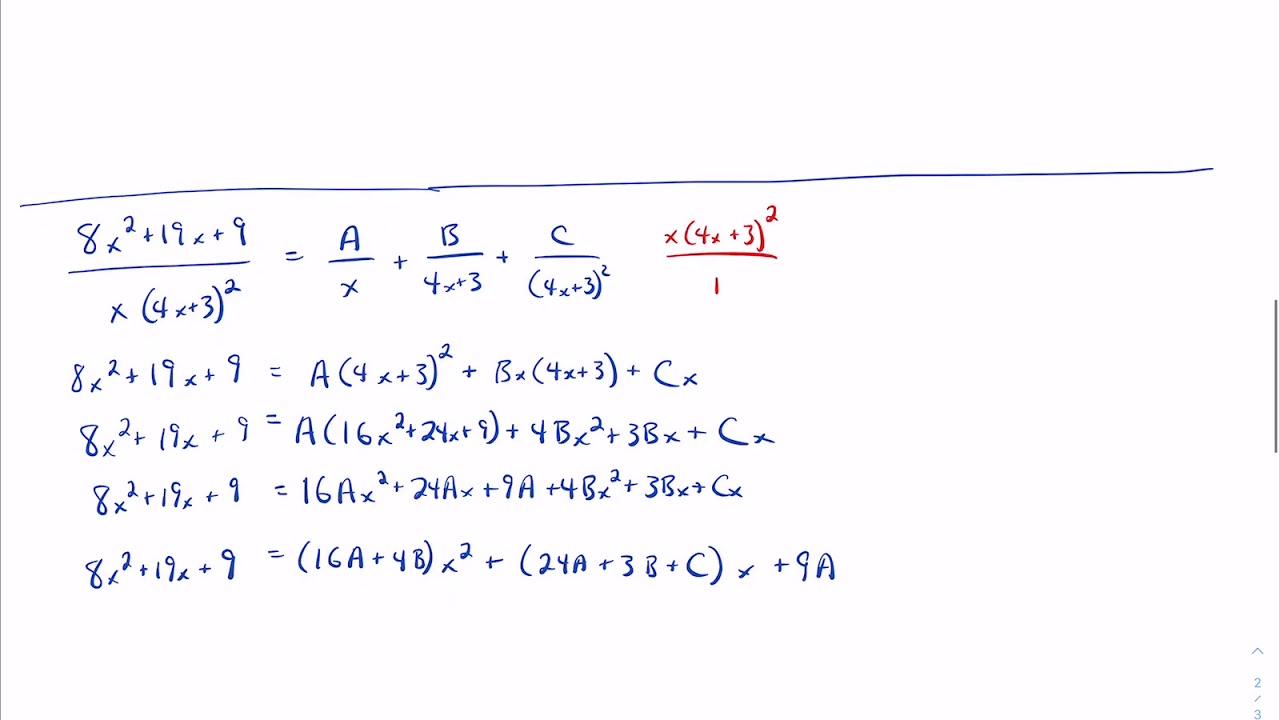 8x²+19x+9 / x(4x+3)² = A/x + B/(4x+3) + C/(4x+3)² x(4x+3)²/1
8x²+19x+9 = A(4x+3)² + Bx(4x+3) + Cx
8x²+19x+9 = A(16x²+24x+9) + 4Bx²+3Bx + Cx
8x²+19x+9 = 16Ax²+24Ax+9A+4Bx²+3Bx+Cx
8x²+19x+9 = (16A+4B)x² + (24A+3B+C)x +9A
2
/
3